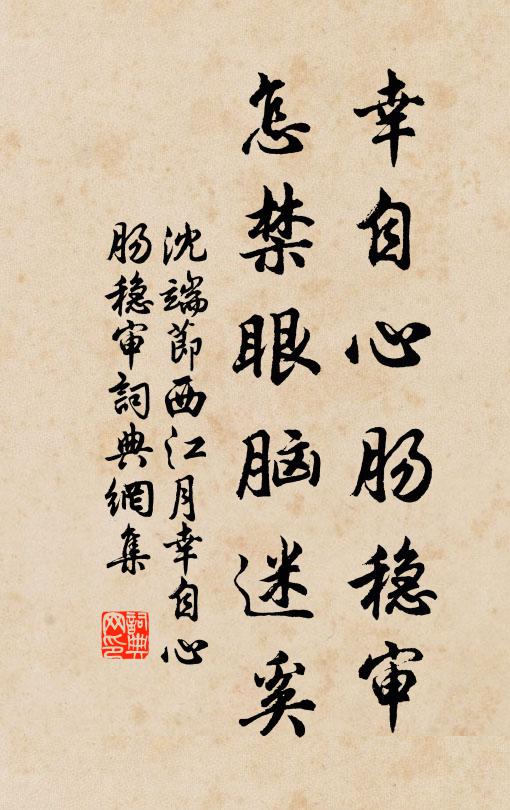 幸自心肠稳审
怎禁眼脑迷奚
沈端节西江月幸自心
肠稳审詞典網集
詞典网印